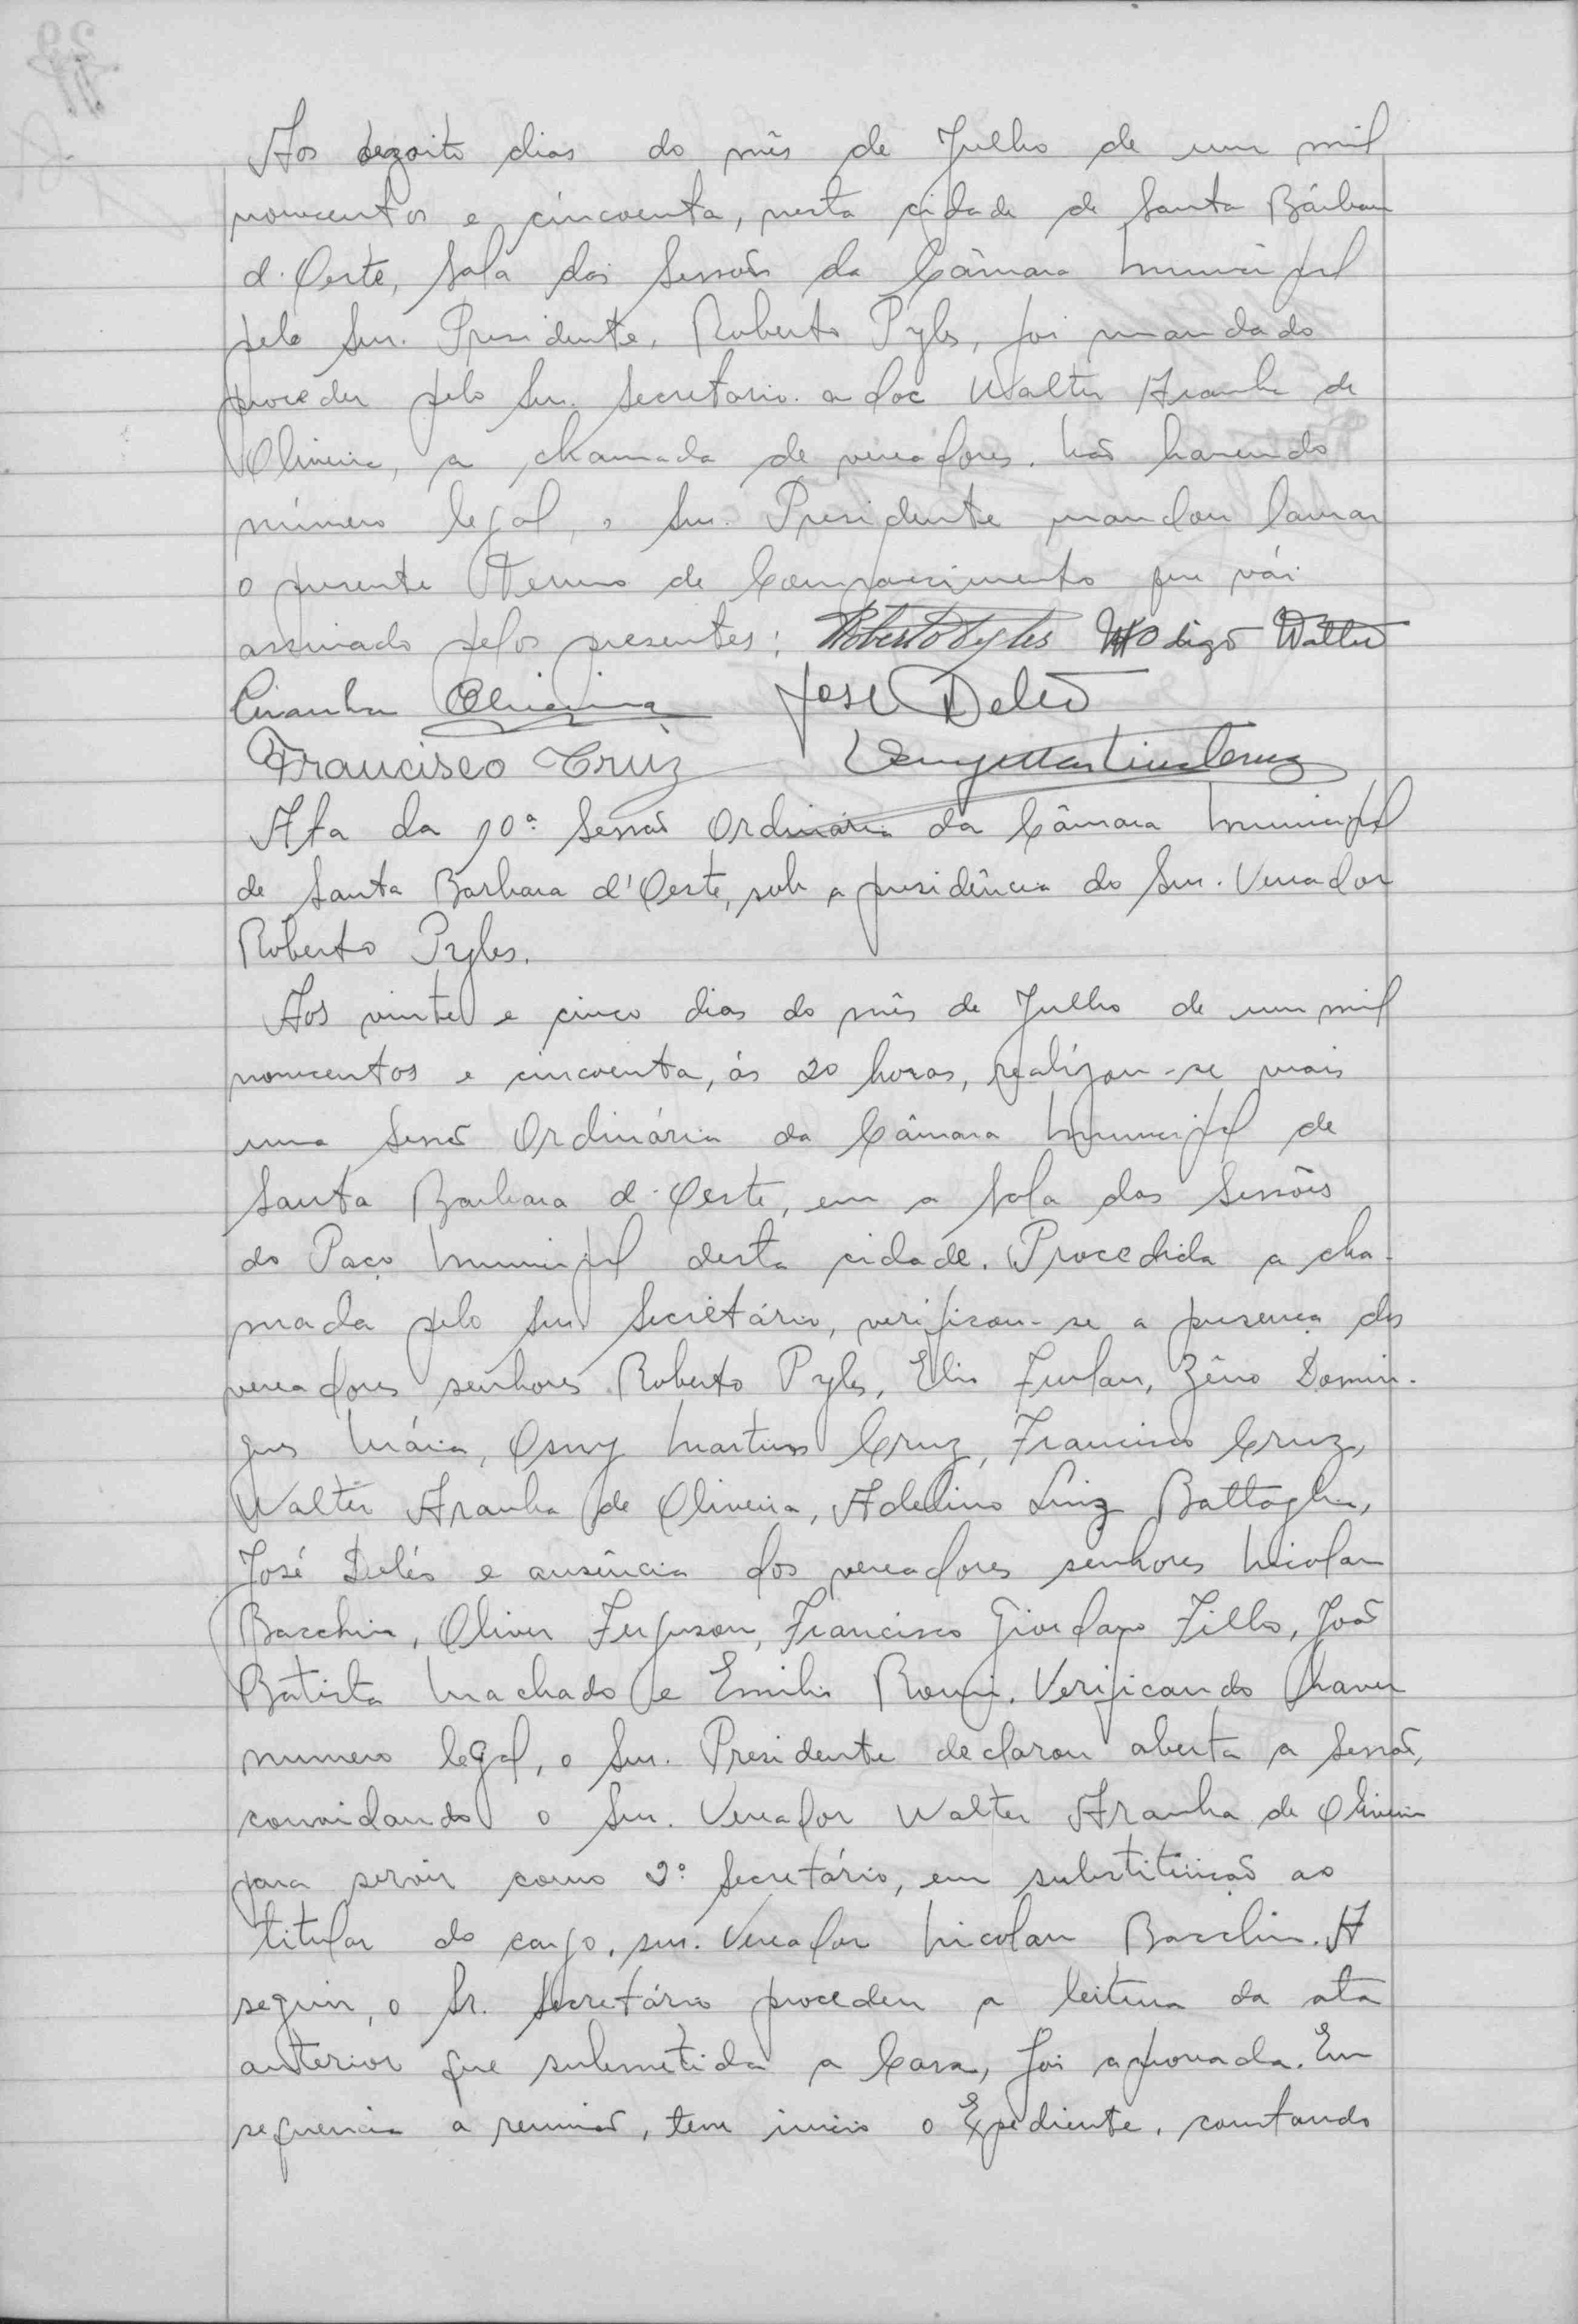 Aos dezoito dias do mês de Julho de um mil
novecentos e cincoenta, nesta cidade de Santa Bárbara
d'Oeste, Sala das Sessões da Câmara Municipal
pelo Snr. Presidente, Roberto Pyles, foi mandado
proceder pelo Snr. Secretario a doc Walter Aranha de
Oliveira, a chamada de vereadores. Não havendo
número legal, o Snr. Presidente mandou lavrar
o presente Termo de Comparecimento que vái
assinado pelos presentes: Roberto Pyles digo Walter
Aranha Oliveira José Deleo
Francisco Cruz Osny Martins Cruz
Ata da 10ª Sessão Ordinária da Câmara Municipal
de Santa Barbara d'Oeste, sob a presidência do Snr. Vereador
Roberto Pyles.
Aos vinte e cinco dias do mês de Julho de um mil
novecentos e cincoenta, ás 20 horas, realizou-se mais
uma Sessão Ordinária da Câmara Municipal de
Santa Barbara d'Oeste, em a Sala das Sessões
do Paço Municipal desta cidade. Procedida a cha-
mada pelo Snr Secretário, verificou-se a presença dos
vereadores senhores Roberto Pyles, Elio Furlan, Zêno Domin-
gues Maia, Osny Martins Cruz, Francisco Cruz,
Walter Aranha de Oliveira, Adelino Luiz Battaglia,
José Deléo e ausência dos vereadores senhores Nicolau
Bacchin, Oliver Ferguson, Francisco Giordano Filho, João
Batista Machado e Emilio Romi. Verificando haver
numero legal, o Snr. Presidente declarou aberta a Sessão,
convidando o Snr. Vereador Walter Aranha de Oliveira
para servir como 2º Secretário, em substituição ao
titular do cargo, snr. Vereador Nicolau Bacchin. A
seguir, o Sr. Secretário procedeu a leitura da ata
anterior que submetida a Casa, foi aprovada. Em
sequencia a reunião, teve inicio o Expediente, constando